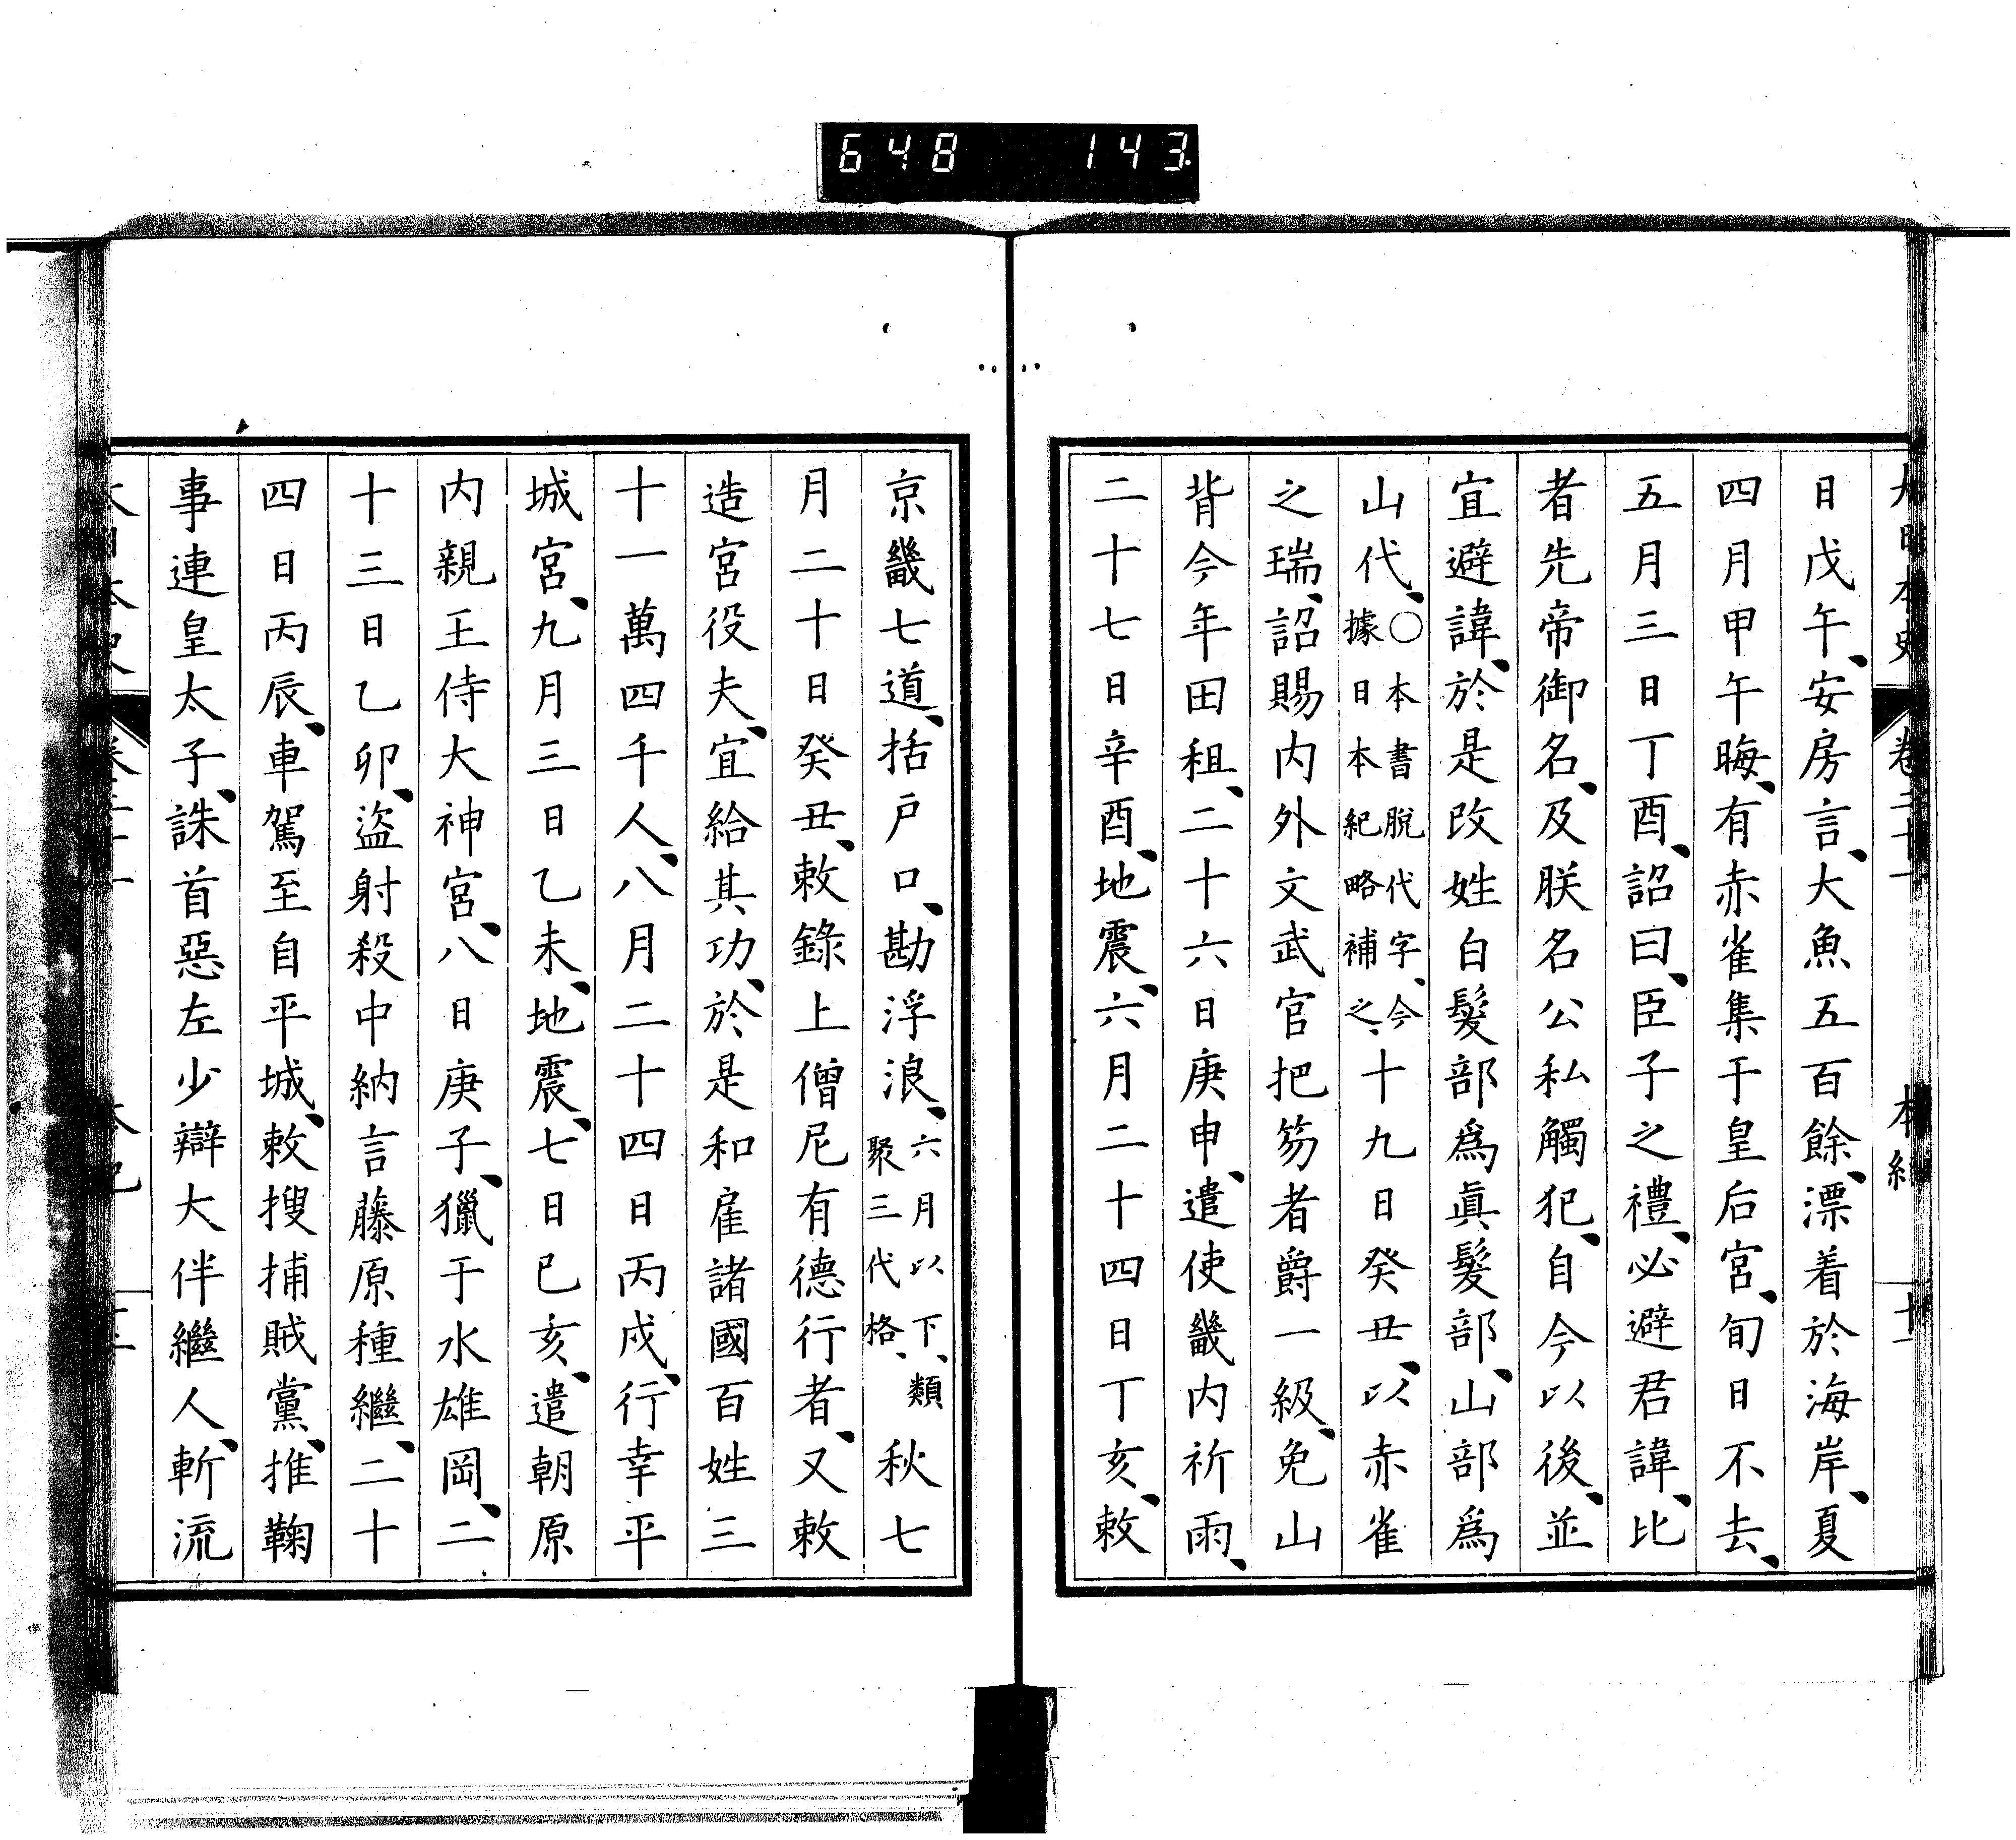 648 143
日戊午、安房言、大魚五百餘、漂着於海岸、夏
四月甲午晦、有赤雀集于皇后宮、旬日不去、
五月三日丁酉、詔曰、臣子之禮、必避君諱、比
者先帝御名、及朕名公私觸犯、自今以後、並
宜避諱、於是改姓白髮部爲眞髮部、山部爲
山代、○本書脫代字、今據日本紀略補之、十九日癸丑、以赤雀
之瑞、詔賜内外文武官把笏者爵一級、免山
背今年田租、二十六日庚申、遣使畿内祈雨、
二十七日辛酉、地震、六月二十四日丁亥、敕
京畿七道、括戶口、勘浮浪、六月以下、類聚三代格、秋七
月二十日癸丑、敕錄上僧尼有德行者、又敕
造宮役夫、宜給其功、於是和雇諸國百姓三
十一萬四千人、八月二十四日丙戌、行幸平
城宮、九月三日乙未、地震、七日己亥、遣朝原
内親王侍大神宮、八日庚子、獵于水雄岡、二
十三日乙卯、盜射殺中納言藤原種繼、二十
四日丙辰、車駕至自平城、敕搜捕賊黨、推鞠
事連皇太子、誅首惡左少辯大伴繼人、斬流